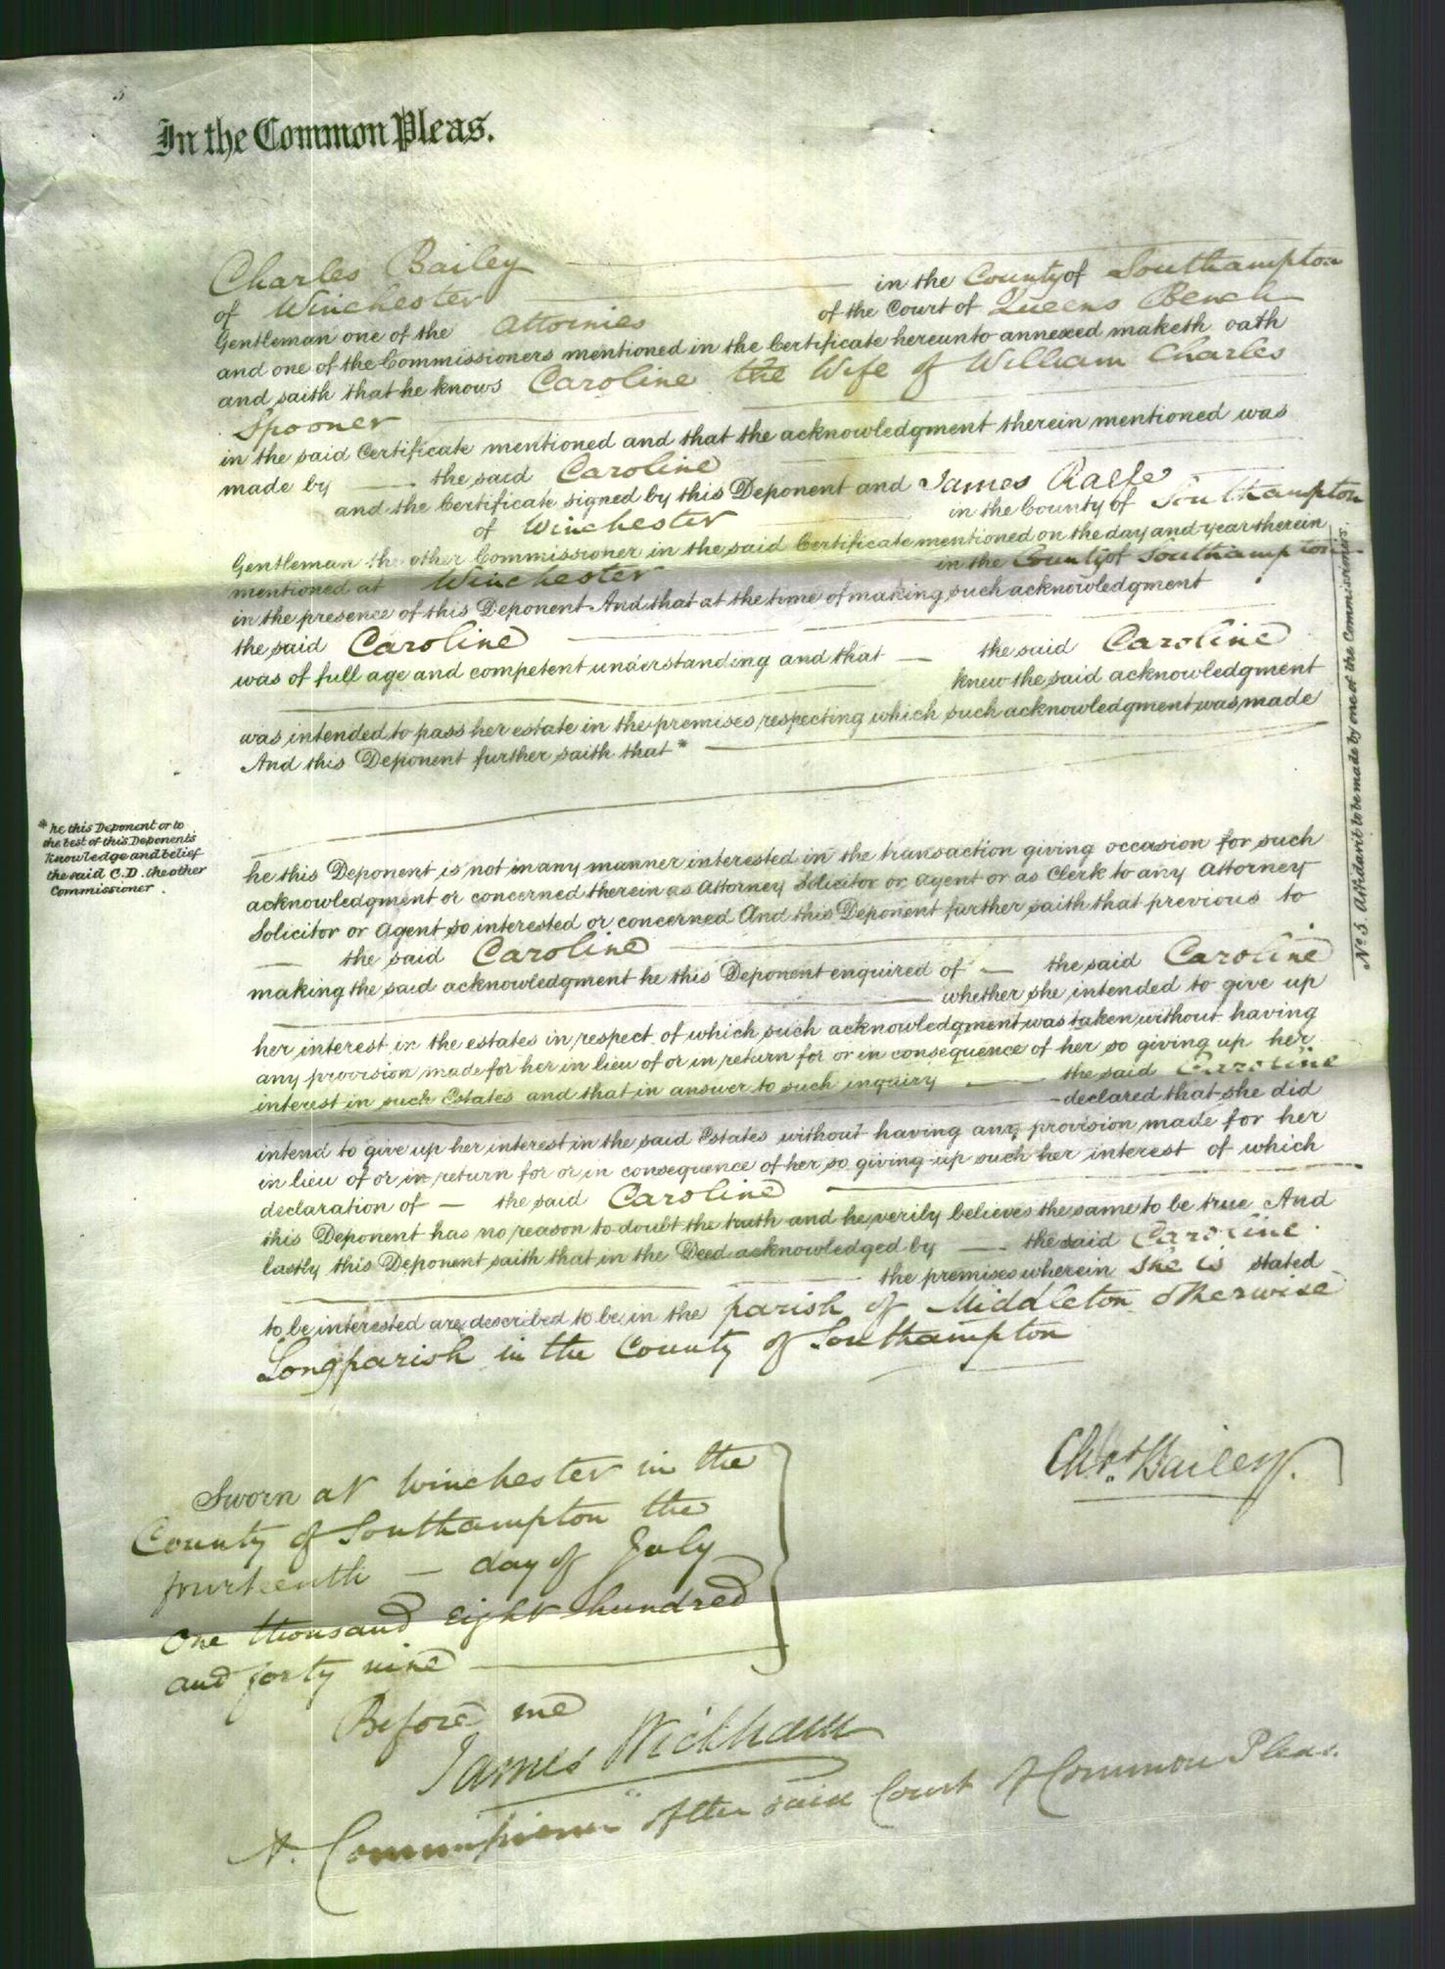 In the Common Pleas.
Charles Bailey
of Winchester in the County of Southampton
Gentleman one of the Attornies of the Court of Queens Bench
and one of the Commissioners mentioned in the Certificate hereunto annexed maketh oath
and saith that he knows Caroline the Wife of William Charles
Spooner
in the said Certificate mentioned and that the acknowledgment therein mentioned was
made by the said Caroline
and the Certificate signed by this Deponent and James Ralfe
of Winchester in the County of Southampton
Gentleman the other Commissioner in the said Certificate mentioned on the day and year therein
mentioned at Winchester in the County of Southampton
in the presence of this Deponent And that at the time of making such acknowledgment
the said Caroline
was of full age and competent understanding and that the said Caroline
knew the said acknowledgment
was intended to pass her estate in the premises respecting which such acknowledgment was made
And this Deponent further saith that *
* he this Deponent or to
the best of this Deponent's
Knowledge and belief
the said C.D. the other
Commissioner.
he this Deponent is not in any manner interested in the transaction giving occasion for such
acknowledgment or concerned therein as Attorney Solicitor or Agent or as Clerk to any Attorney
Solicitor or Agent so interested or concerned And this Deponent further saith that previous to
the said Caroline
making the said acknowledgment he this Deponent enquired of the said Caroline
whether she intended to give up
her interest in the estates in respect of which such acknowledgment was taken without having
any provision made for her in lieu of or in return for or in consequence of her so giving up her
interest in such Estates and that in answer to such inquiry the said Caroline
declared that she did
intend to give up her interest in the said Estates without having any provision made for her
in lieu of or in return for or in consequence of her so giving up such her interest of which
declaration of the said Caroline
this Deponent has no reason to doubt the truth and he verily believes the same to be true And
lastly this Deponent saith that in the Deed acknowledged by the said Caroline
the premises wherein she is stated
to be interested are described to be in the parish of Middleton otherwise
Longparish in the County of Southampton
Chas. Bailey.
Sworn at Winchester in the
County of Southampton the
fourteenth day of July
One thousand eight hundred
and forty nine
Before me
James Wickham
A Commissioner of the said Court of Common Pleas.
No. 5. Affidavit to be made by one of the Commissioners.